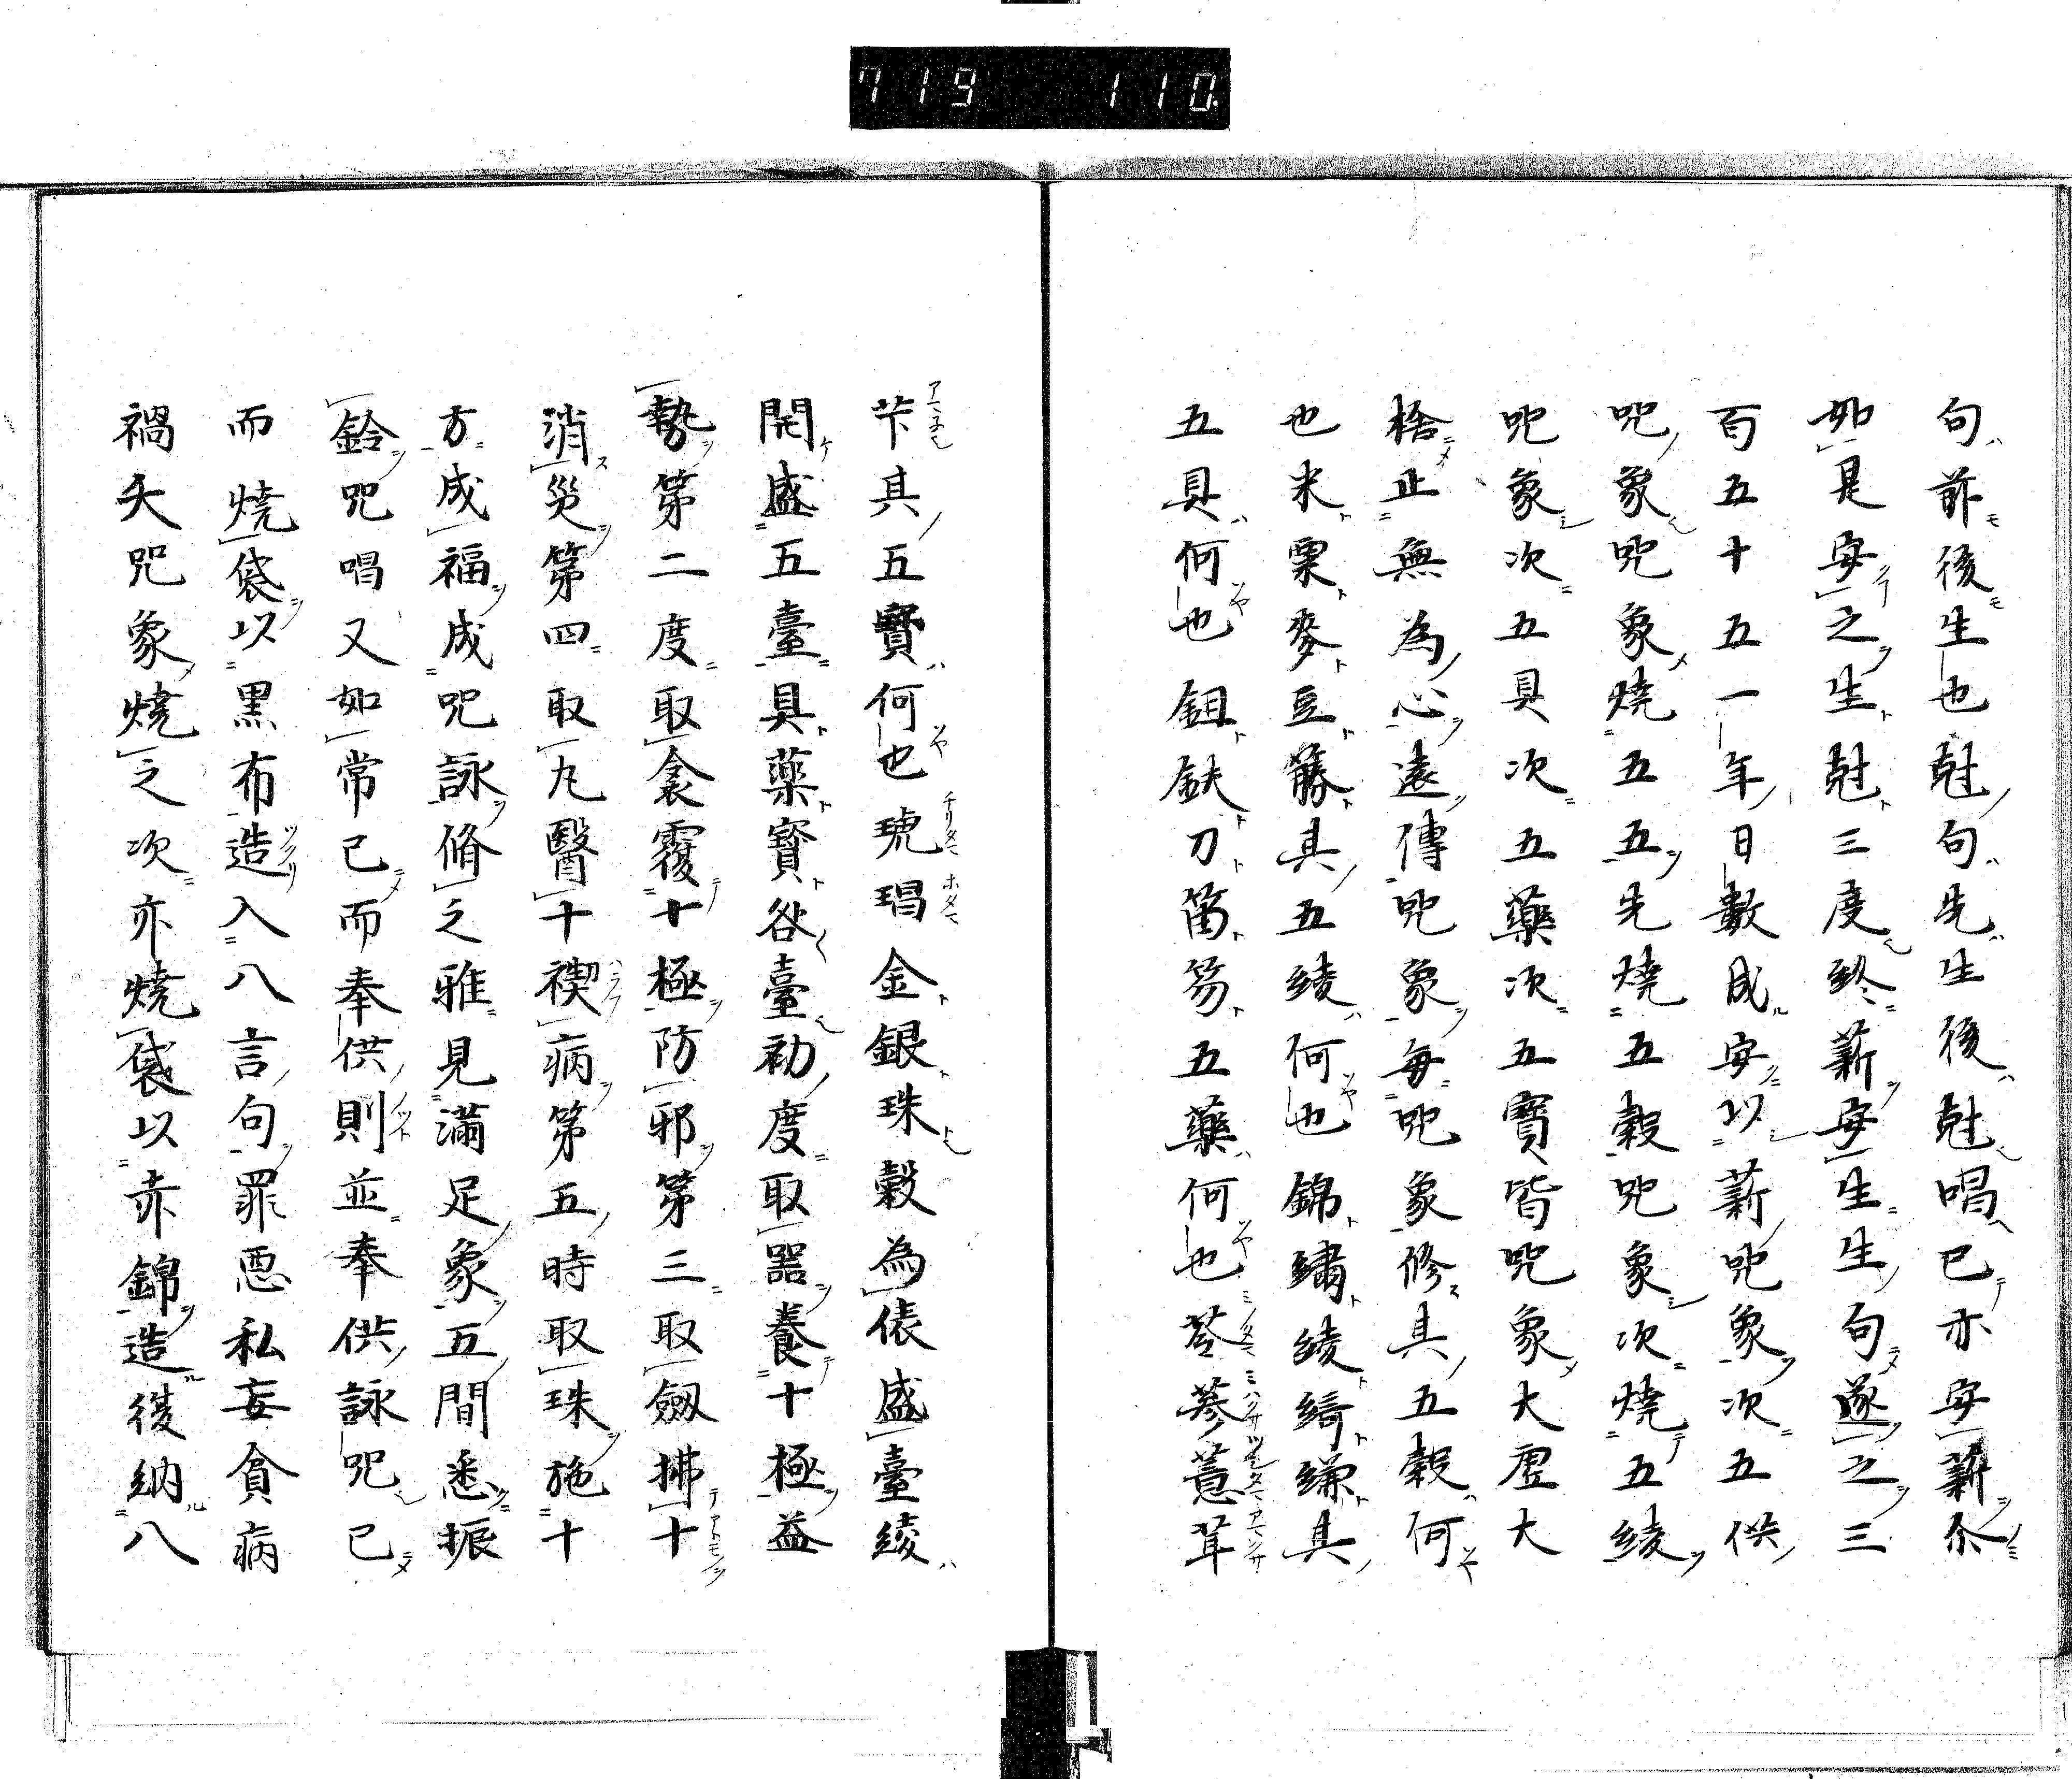 719 110.
句前後生也尅句先生後尅唱已亦安薪尒
如是安之生尅三度終薪安生生句遂之三
百五十五一年日數成安以薪呪象次五供
呪象呪象燒五五先燒五穀呪象次燒五綾
呪象次五具次五藥次五寶皆呪象大虛大
捨止無為心遠傳呪象每呪象修具五穀何
也米粟麥豆籐具五綾何也錦繡綾綺縑具
五具何也鉏鈇刀笛笏五藥何也苓蔘薏茸
芐具五寶何也琥瑁金銀珠穀為俵盛臺綾
開盛五臺具藥寶谷臺初度取器養十極益
勢第二度取衾覆十極防邪第三取劔拂十
消災第四取丸醫十禊病第五時取珠施十
方成福成呪詠脩之雅見滿足象五間悉振
鈴呪唱又如常已而奉供則並奉供詠呪已
而燒袋以黑布造入八言句罪惡私妄貪病
禍夭呪象燒之次亦燒袋以赤錦造後納八